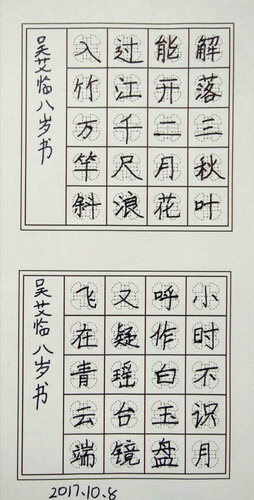 解落三秋叶
能开二月花
过江千尺浪
入竹万竿斜
吴艾临八岁书
小时不识月
呼作白玉盘
又疑瑶台镜
飞在青云端
吴艾临八岁书
2017.10.8